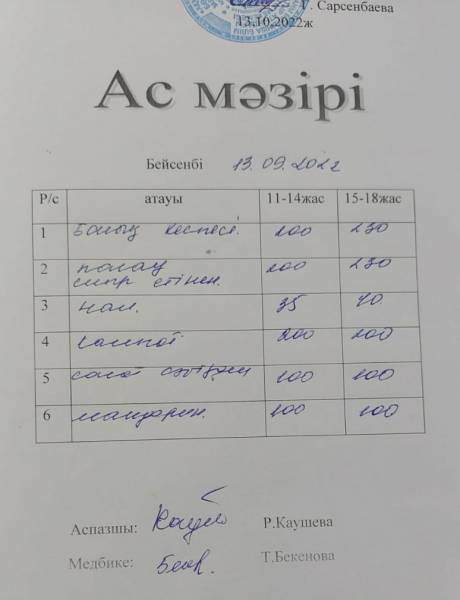 Г. Сарсенбаева
13.10.2022ж
Ас мәзірі
Бейсенбі 13.09.2022
Р/с атауы 11-14жас 15-18жас
1 Балық кеспесі. 200 230
2 палау сиыр етінен. 200 230
3 нан. 35 70
4 компот 200 200
5 салат сәбізден 100 100
6 мандарин. 100 100
Аспазшы: Р.Каушева
Медбике: Т.Бекенова